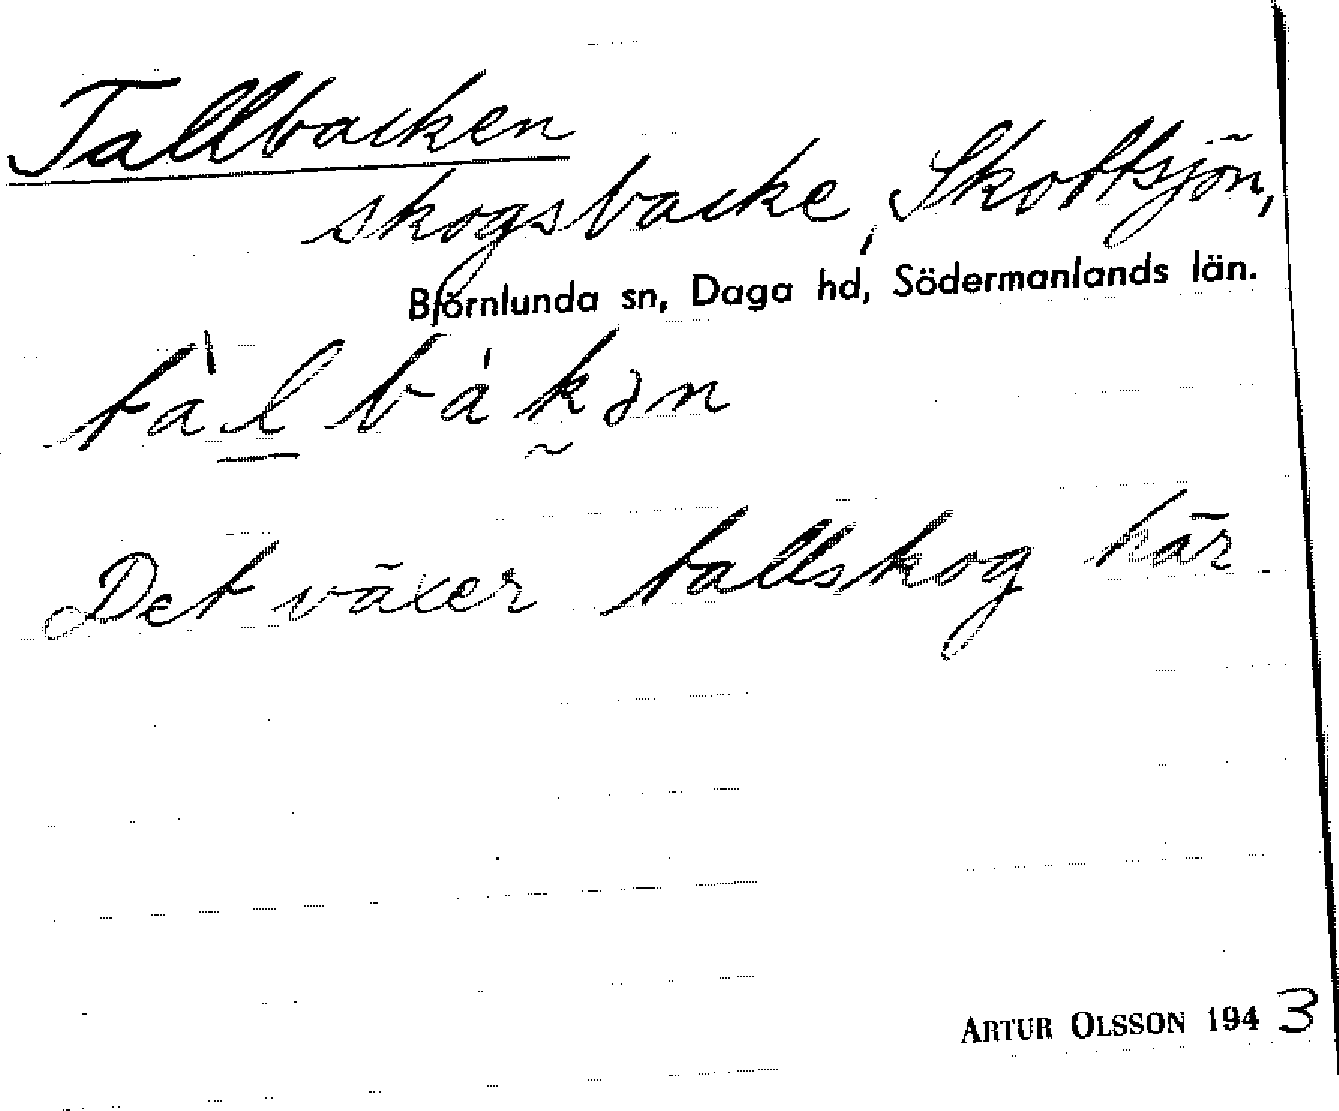 Tallbacken
skogsbacke, Skottsjön,
Björnlunda sn, Daga hd, Södermanlands län.
tàlbákən
Det växer tallskog här
ARTUR OLSSON 1943